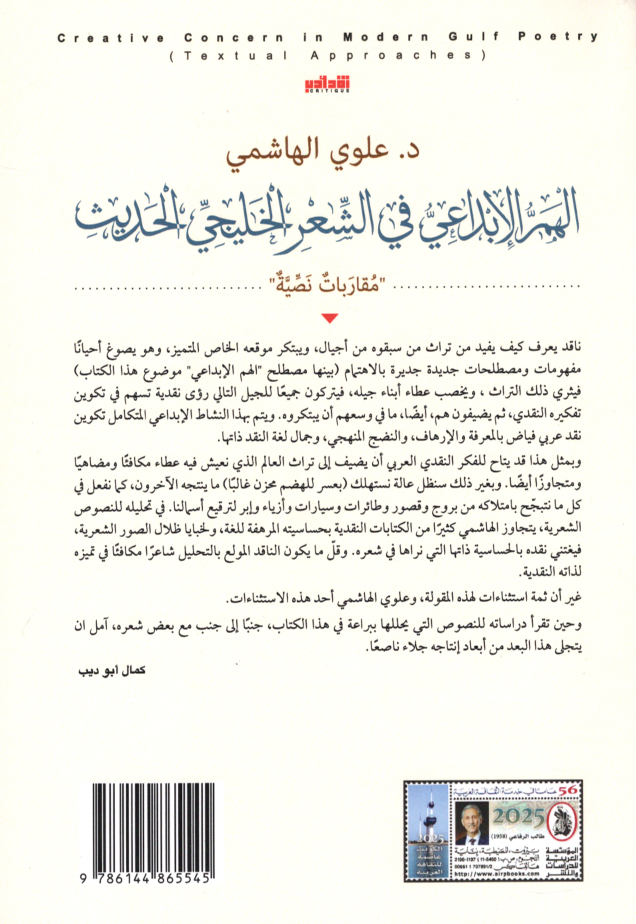 Creative Concern in Modern Gulf Poetry
(Textual Approaches)
CRITIQUE
د. علوي الهاشمي
الهَمُّ الإبْدَاعِيُّ في الشِّعْرِ الخَليجِيِّ الحَدِيثِ
"مُقارَباتٌ نَصِّيَّةٌ"
ناقد يعرف كيف يفيد من تراث من سبقوه من أجيال، ويبتكر موقعه الخاص المتميز، وهو يصوغ أحيانًا
مفهومات ومصطلحات جديدة جديرة بالاهتمام (بينها مصطلح "الهم الإبداعي" موضوع هذا الكتاب)
فيثري ذلك التراث ، ويخصب عطاء أبناء جيله، فيتركون جميعًا للجيل التالي رؤى نقدية تسهم في تكوين
تفكيره النقدي، ثم يضيفون هم، أيضًا، ما في وسعهم أن يبتكروه. ويتم بهذا النشاط الإبداعي المتكامل تكوين
نقد عربي فياض بالمعرفة والإرهاف، والنضج المنهجي، وجمال لغة النقد ذاتها.
وبمثل هذا قد يتاح للفكر النقدي العربي أن يضيف إلى تراث العالم الذي نعيش فيه عطاء مكافئًا ومضاهيًا
ومتجاوزًا أيضًا. وبغير ذلك سنظل عالة نستهلك (بعسر للهضم محزن غالبًا) ما ينتجه الآخرون، كما نفعل في
كل ما نتبجّح بامتلاكه من بروج وقصور وطائرات وسيارات وأزياء وإبر لترقيع أسمالنا. في تحليله للنصوص
الشعرية، يتجاوز الهاشمي كثيرًا من الكتابات النقدية بحساسيته المرهفة للغة، ولخبايا ظلال الصور الشعرية،
فيغتني نقده بالحساسية ذاتها التي نراها في شعره. وقلّ ما يكون الناقد المولع بالتحليل شاعرًا مكافئًا في تميزه
لذاته النقدية.
غير أن ثمة استثناءات لهذه المقولة، وعلوي الهاشمي أحد هذه الاستثناءات.
وحين تقرأ دراساته للنصوص التي يحللها ببراعة في هذا الكتاب، جنبًا إلى جنب مع بعض شعره، آمل ان
يتجلى هذا البعد من أبعاد إنتاجه جلاء ناصعًا.
كمال أبو ديب
56 عاما في خدمة الثقافة العربية
2025
طالب الرفاعي (1958)
المؤسسة
العربية
للدراسات
والنشر
http://www.airpbooks.com
2025
الكويت
عاصمة
للثقافة
العربية
9 786144 865545